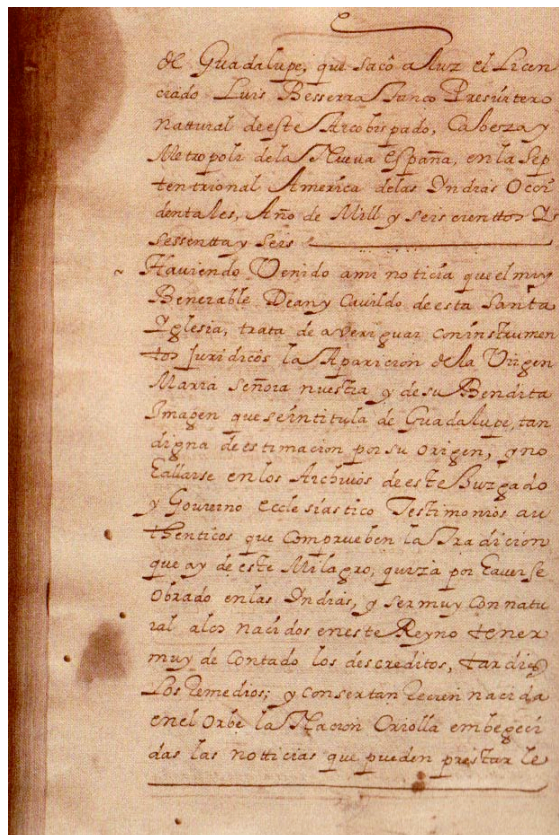 de Guadalupe, que sacô a luz el Licen
ciado Luis Besserra Tanco Presvitero
natural de este Arcobispado, Cabeza y
Metropoli de la Nueva España, en la Sep
tentrional America de las Indias Occi
dentales, Año de Mill y seis cienttos y
Sessentta y Seis
Haviendo Venido ami noticia que el muy
Benerable Dean y Cavildo de esta Santa
Yglesia, trata de averiguar con instrumen
tos Juridicos la Aparicion de la Virgen
Maria Señora nuestra y de su Bendita
Imagen que se intitula de Guadalupe, tan
digna de estimacion por su origen, y no
hallarse en los Archivos de este Juzgado
y Gouierno Ecclesiastico Testimonios au
thenticos que comprueben la Tradicion
que ay de este Milagro, quiza por haverse
Obrado en las Indias, y ser muy connatu
ral alos nacidos en este Reyno tener
muy de Contado los descreditos, tardios
Los remedios; y con ser tan recien nacida
en el Orbe la Nacion Criolla embegeci
das las notticias que pueden prestar le